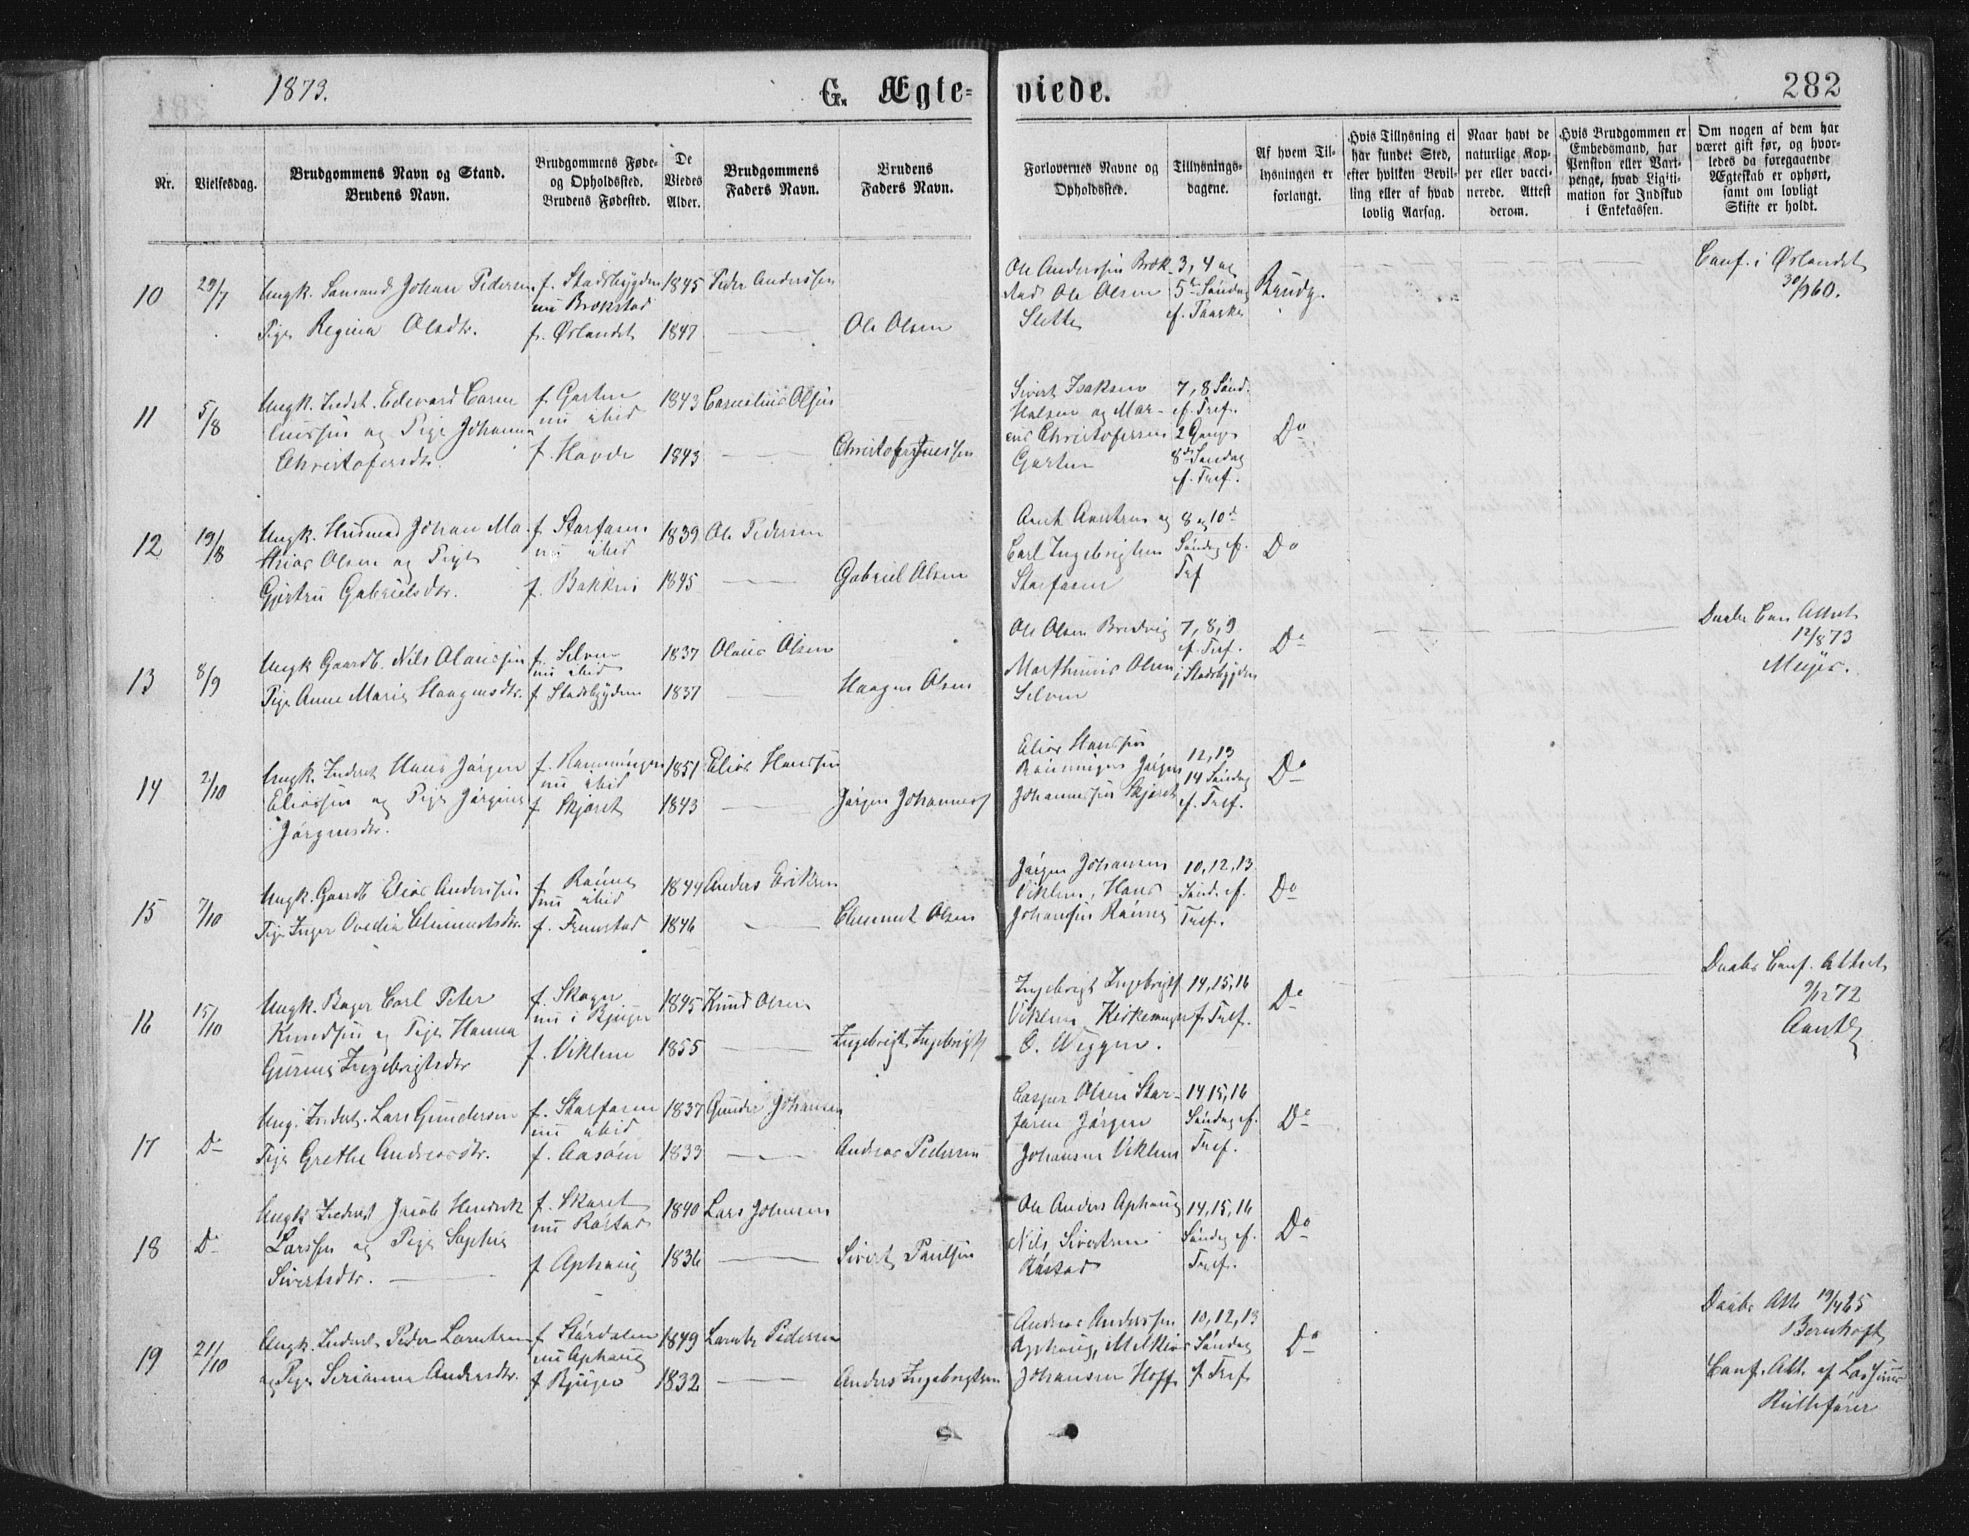 1873.
G. Ægte-
viede.
282
Nr.
Vielsesdag.
Brudgommens Navn og Stand.
Brudens Navn.
Brudgommens Føde-
og Opholdssted.
Brudens Fødested.
De
Viedes
Alder.
Brudgommens
Faders Navn.
Brudens
Faders Navn.
Forlovernes Navne og
Opholdssted.
Tillysnings-
dagene.
Af hvem Til-
lysningen er
forlangt.
Hvis Tillysning ei
har fundet Sted,
efter hvilken Bevil-
ling eller af hvad
lovlig Aarsag.
Naar havt de
naturlige Kop-
per eller vacci-
nerede. Attest
derom.
Hvis Brudgommen er
Embedsmand, har
Pension eller Vart-
penge, hvad Legiti-
mation for Indskud
i Enkekassen.
Om nogen af dem har
været gift før, og hvor-
ledes da foregaaende
Ægteskab er ophørt,
samt om lovligt
Skifte er holdt.
10 29/7
Ungk. Johan Pedersen
Pige Regina Olsdtr.
f. Stadsbygden
nu Brækstad
f. Ørlandet
1845
1847
Peder Anderssen
Ole Olsen
Ole Anderssen Bræk-
stad Ole Olsen
Slette
3, 4 og
5te Søndag
ef. Paaske
Brudg.
Conf. i Ørlandet
30/9 60.
11 5/8
Ungk. Inderst. Edevard Corne
liussen og Pige Johanna
Christofersdtr.
f. Garten
nu ibid
f. Hovde
1843
1843
Cornelius Olsen
Christofer Jenssen
Sivert Isaksen
og Mar-
Christofersen
Garten
7, 8 Sønd.
ef. Tref.
2 Gange
8de Søndag
ef. Tref.
Do
12 19/8
Ungk. Husmand Johan Ma-
thias Olsen og Pige
Gjertru Gabrielsdtr.
f. Storfosen
nu ibid
f. Bakken
1839
1845
Ole Pedersen
Gabriel Olsen
Arnt Arntsen og
Carl Ingebrigtsen
Storfosen
8 og 10de
Søndag ef.
Tref
Do
13 8/9
Ungk Gaardb. Nils Olaussen
Pige Anne Marie Haagensdtr.
f. Selven
nu ibid
f Stadsbygden
1837
1837
Olaus Olsen
Haagen Olsen
Ole Olsen Bredvig
Marthinus Olsen
Selven
7, 8, 9
ef. Tref.
i Stadsbygden
Do
Daabs Att.
12/8 73
Meyer.
14 2/10
Ungk. Inderst Hans Jørgen
Eliassen og Pige Jørgine
Jørgensdtr.
f. Rønningen
nu ibid
f Skjøret
1851
1843
Elias Hanssen
Jørgen Johanness
Elias Hanssen
Rønningen Jørgen
Johannessen Skjøret
12, 13
14 Søndag
ef. Tref.
Do
15 7/10
Ungk. Gaardb Elias Anderssen
Pige Inger Ovedia Clemmetsdtr.
nu ibid
f.
1844
1846
Anders Eriksen
Clemmet Olsen
Jørgen Johansen
Viklem, Hans
Johanssen
10, 12, 13
Sønd. ef.
Tref.
Do
16 15/10
Ungk. Bager Carl Peter
Knudsen og Pige Hanna
Ingebrigtsdtr
f. Skogn
nu i Bjugn
f. Viklem
1845
1855
Knud Olsen
Ingebrigt Ingebrigts
Ingebrigt Ingebrigts
Viklem Kirkesanger
O. Wiggen.
14, 15, 16
f. Tref.
Do
Daabs Conf. Attest
9/12 72
17 Do
Ung. Inderst. Lars Gundersen
Pige Grethe Andreasdtr.
f. Storfosen
nu ibid
f. Aasøen
1837
1833
Gunder Johansen
Andreas Pedersen
Casper Olsen Stor-
fosen Jørgen
Johansen Viklem
14 15, 16
Søndag ef.
Tref.
Do
18 Do
Ungk Inderst Jacob Hendrik
Larssen og Pige Sophie
Sivertsdtr.
f. Skaret
nu Røstad
f Aphaug
1840
1836
Lars Johnsen
Sivert Paulsen
Ole Anders Aphaug
Nils Sivertsen
Røstad
14, 15, 16
Søndag ef.
Tref.
Do
19 21/10
Ungk. Inderst. Peder Lorntsen
og Pige Serianna Andersdtr.
f Stjørdalen
nu Aphaug
f Bjugn
1849
1832
Lornts Pedersen
Anders Ingebrigtsen
Andreas Anderssen
Aphaug, Melkior
Johansen Hoff
10, 12, 13
Søndag
f Tref
Do
Daabs Att 19/4 65
Bernhoft
Conf. Att. af